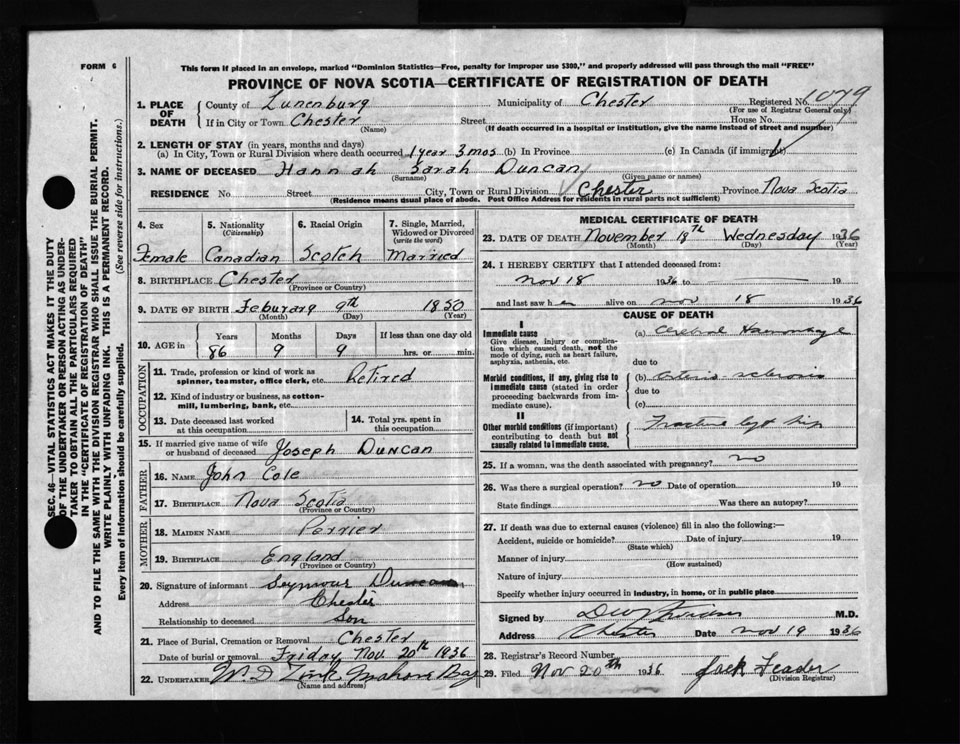 FORM 6
This form if placed in an envelope, marked "Dominion Statistics—Free, penalty for improper use $300," and properly addressed will pass through the mail "FREE"
PROVINCE OF NOVA SCOTIA—CERTIFICATE OF REGISTRATION OF DEATH
1. PLACE OF DEATH
County of Lunenburg Municipality of Chester Registered No. 1079
(For use of Registrar General only)
If in City or Town Chester Street House No.
(Name) (If death occurred in a hospital or institution, give the name instead of street and number)
2. LENGTH OF STAY (in years, months and days)
(a) In City, Town or Rural Division where death occurred 1 year 3 mos (b) In Province (c) In Canada (if immigrant)
3. NAME OF DECEASED Hannah Sarah Duncan
(Surname) (Given name or names)
RESIDENCE No. Street City, Town or Rural Division Chester Province Nova Scotia
(Residence means usual place of abode. Post Office Address for residents in rural parts not sufficient)
4. Sex 5. Nationality (Citizenship) 6. Racial Origin 7. Single, Married, Widowed or Divorced (write the word)
Female Canadian Scotch Married
8. BIRTHPLACE Chester
(Province or Country)
9. DATE OF BIRTH Feburary 9th 1850
(Month) (Day) (Year)
10. AGE in Years Months Days If less than one day old
86 9 9 hrs. or min.
OCCUPATION
11. Trade, profession or kind of work as spinner, teamster, office clerk, etc. Retired
12. Kind of industry or business, as cotton-mill, lumbering, bank, etc.
13. Date deceased last worked at this occupation 14. Total yrs. spent in this occupation
15. If married give name of wife or husband of deceased Joseph Duncan
FATHER
16. Name John Cole
17. Birthplace Nova Scotia
(Province or Country)
MOTHER
18. Maiden Name Perrier
19. Birthplace England
(Province or Country)
20. Signature of informant Seymour Duncan
Address Chester
Relationship to deceased Son
21. Place of Burial, Cremation or Removal Chester
Date of burial or removal Friday Nov. 20th 1936
22. Undertaker Mahone Bay
(Name and address)
MEDICAL CERTIFICATE OF DEATH
23. DATE OF DEATH November 18th Wednesday 1936
(Month) (Day) (Year)
24. I HEREBY CERTIFY that I attended deceased from:
Nov 18 1936 to 19
and last saw her alive on Nov 18 1936
CAUSE OF DEATH
I
Immediate cause
Give disease, injury or complication which caused death, not the mode of dying, such as heart failure, asphyxia, asthenia, etc.
(a) Cerebral Haemorrhage
due to
Morbid conditions, if any, giving rise to immediate cause (stated in order proceeding backwards from immediate cause).
(b) Arterio-sclerosis
due to
(c)
II
Other morbid conditions (if important) contributing to death but not causally related to immediate cause.
Fracture left hip
25. If a woman, was the death associated with pregnancy? no
26. Was there a surgical operation? no Date of operation 19
State findings Was there an autopsy?
27. If death was due to external causes (violence) fill in also the following:—
Accident, suicide or homicide? Date of injury 19
(State which)
Manner of injury
(How sustained)
Nature of injury
Specify whether injury occurred in industry, in home, or in public place
Signed by M.D.
Address Chester Date Nov 19 1936
28. Registrar's Record Number
29. Filed Nov 20th 1936 Jack Feader
(Division Registrar)
SEC. 46—VITAL STATISTICS ACT MAKES IT THE DUTY
OF THE UNDERTAKER OR PERSON ACTING AS UNDER-
TAKER TO OBTAIN ALL THE PARTICULARS REQUIRED
IN THE "CERTIFICATE OF REGISTRATION OF DEATH"
AND TO FILE THE SAME WITH THE DIVISION REGISTRAR WHO SHALL ISSUE THE BURIAL PERMIT.
WRITE PLAINLY WITH UNFADING INK. THIS IS A PERMANENT RECORD.
Every item of information should be carefully supplied. (See reverse side for instructions.)